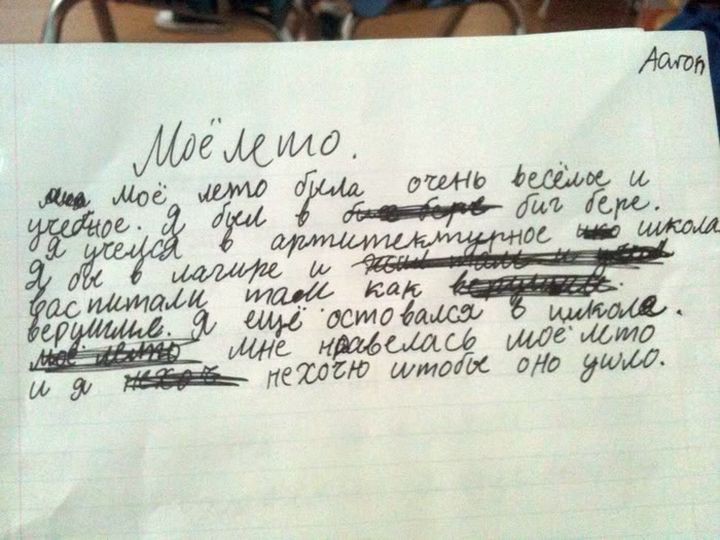 Aaron
Моё лето.
Моё лето была очень весёлое и
учебное. Я был в биг бере.
Я учелся в артитектурное школа
Я бы в лагире и
васпитали там как
верушие. Я ещё оставался в школе.
мне нравелась моё лето
и я нехочю штобы оно ушло.